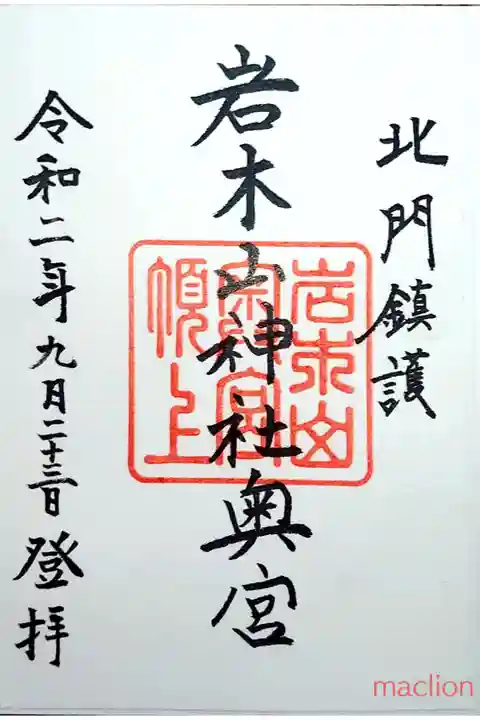 北門鎮護
岩木山神社奥宮
令和二年九月二十三日登拝
岩木山
奥宮
頂上
maclion